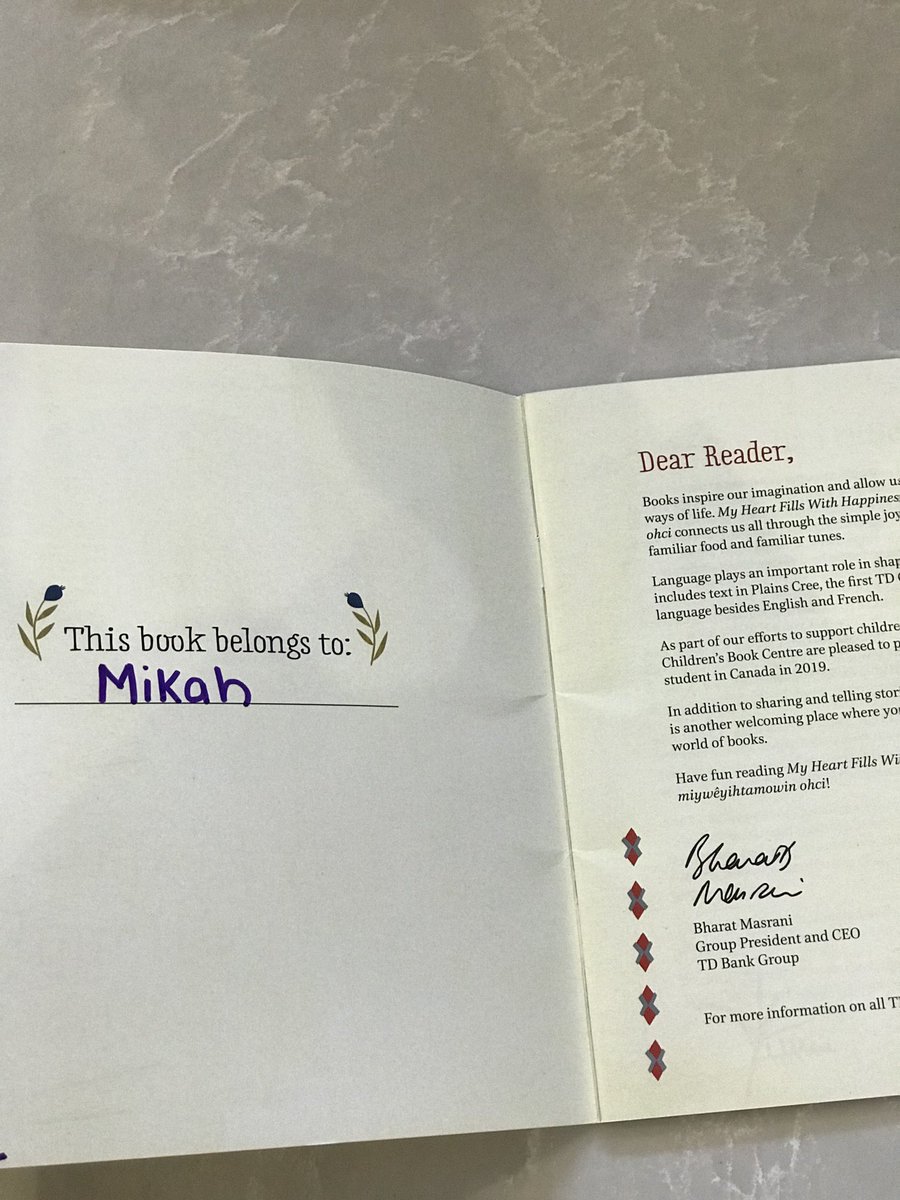 This book belongs to:
Mikah
Dear Reader,
Books inspire our imagination and allow us
ways of life. My Heart Fills With Happines
ohci connects us all through the simple joy
familiar food and familiar tunes.
Language plays an important role in shap
includes text in Plains Cree, the first TD
language besides English and French.
As part of our efforts to support childre
Children's Book Centre are pleased to p
student in Canada in 2019.
In addition to sharing and telling stor
is another welcoming place where you
world of books.
Have fun reading My Heart Fills Wi
miywêyihtamowin ohci!
Bharat
Masrani
Bharat Masrani
Group President and CEO
TD Bank Group
For more information on all T